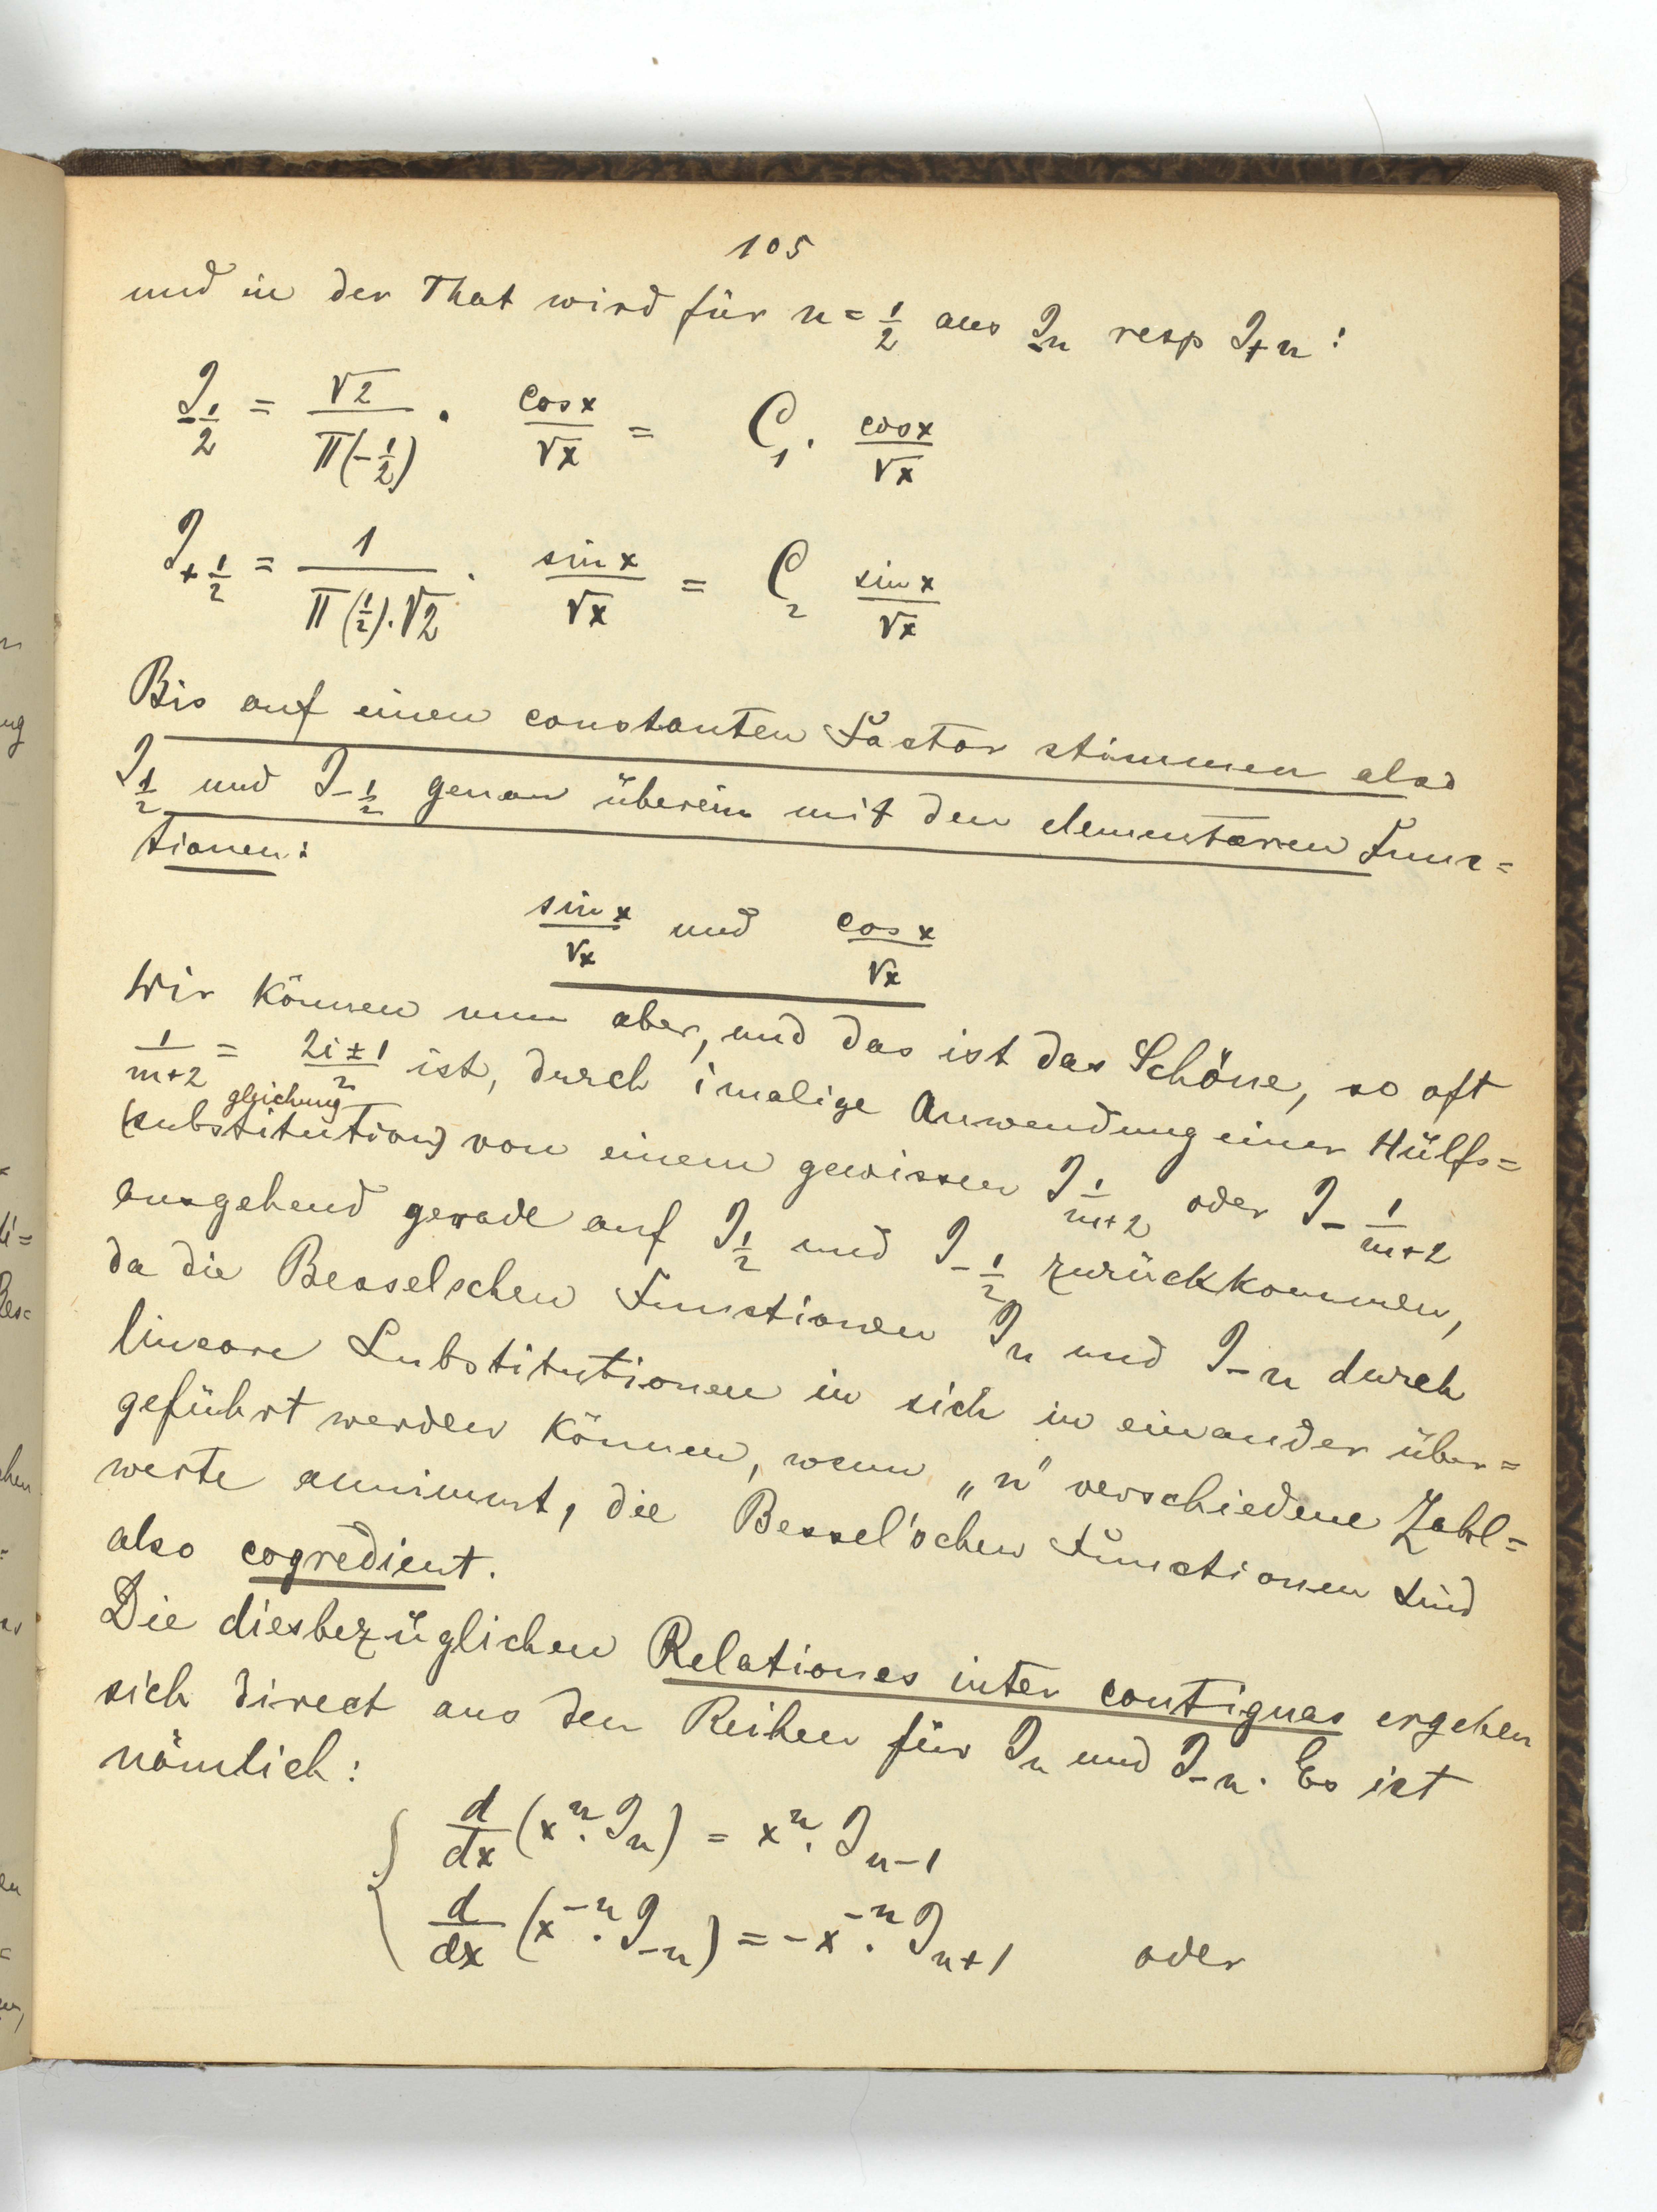 105
und in der That wird für n = 1/2 aus J_-n resp J_+n :
J_-1/2 = √2 / Π(-1/2) · cos x / √x = C_1 · cos x / √x
J_+1/2 = 1 / Π(1/2)·√2 · sin x / √x = C_2 sin x / √x
Bis auf einen constanten Factor stimmen also
J_1/2 und J_-1/2 genau überein mit den elementaren Func=
tionen:
sin x / √x und cos x / √x
Wir können nun aber, und das ist das Schöne, so oft
1/(m+2) = (2i±1)/2 ist, durch i malige Anwendung einer Hülfs=
gleichung
(substitution) von einem gewissen J_1/(m+2) oder J_-1/(m+2)
ausgehend gerade auf J_1/2 und J_-1/2 zurückkommen,
da die Besselschen Functionen J_n und J_-n durch
lineare Substitutionen in sich in einander über=
geführt werden können, wenn „n" verschiedene Zahl=
werte annimmt, die Bessel'schen Functionen sind
also cogredient.
Die diesbezüglichen Relationes inter contiguas ergeben
sich direct aus den Reihen für J_n und J_-n. Es ist
nämlich:
d/dx (x^n · J_n) = x^n · J_n-1
d/dx (x^-n · J_-n) = - x^-n · J_n+1 oder